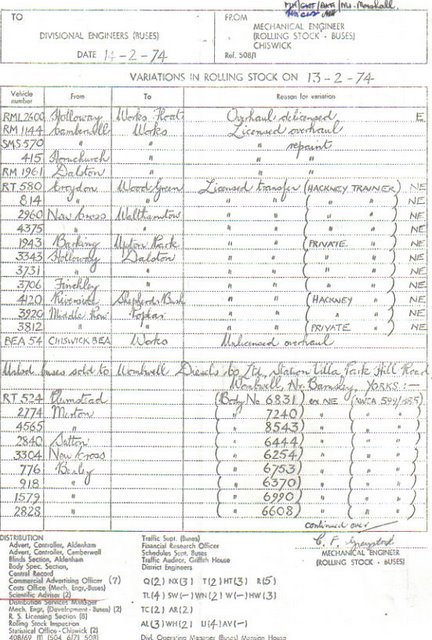 TO
FROM
DIVISIONAL ENGINEERS (BUSES)
MECHANICAL ENGINEER
(ROLLING STOCK - BUSES)
CHISWICK
DATE 14-2-74
Ref. 508/1
VARIATIONS IN ROLLING STOCK ON 13-2-74
Vehicle number From To Reason for variation
RML2600 Holloway Works Float Overhaul delicensed E
RM 1144 Camberwell Works Licensed overhaul
SMS 570 " " " repaint
415 Hornchurch " " "
RM 1961 Dalston " " "
RT 580 Croydon Wood Green Licensed transfer (HACKNEY TRAINER) NE
814 " " " " ( " " ) NE
2960 New Cross Walthamstow " " ( " " ) NE
4375 " " " " ( " " ) NE
1943 Barking Upton Park " " (PRIVATE " ) NE
3343 Holloway Dalston " " ( " " ) NE
3731 " " " " ( " " ) NE
3706 Finchley " " " ( " " ) NE
4120 Riverside Shepherds Bush " " (HACKNEY " ) NE
3920 Middle Row " " ( " " ) NE
3812 " " " " (PRIVATE " ) NE
BEA 54 CHISWICK BEA Works Unlicensed overhaul
Unlsd buses sold to Wombwell Diesels Co Ltd, Station Villa, Park Hill Road
Wombwell, Nr. Barnsley, YORKS:—
RT 524 Plumstead (Body No 6831) ex NE (NWCA 599/585)
2774 Merton ( " 7240) " ( " " )
4565 " ( " 8543) " ( " " )
2840 Sutton ( " 6444) " ( " " )
3304 New Cross ( " 6254) " ( " " )
776 Bexley ( " 6753) " ( " " )
918 " ( " 6370) " ( " " )
1579 " ( " 6990) " ( " " )
2828 " ( " 6608) " ( " " )
continued over
MECHANICAL ENGINEER
(ROLLING STOCK - BUSES)
DISTRIBUTION
Advert. Controller, Aldenham
Advert. Controller, Camberwell
Blinds Section, Aldenham
Body Spec. Section,
Central Record
Commercial Advertising Officer (7)
Costs Office (Mech. Engr, Buses)
Scientific Adviser (2)
Distribution Services Manager
Mech. Engr. (Development - Buses)
R & S Licensing Section (2)
Rolling Stock Inspection
Statistical Office - Chiswick (2)
Traffic Supt. (Buses)
Financial Research Officer
Schedules Supt. Buses
Traffic Auditor, Griffith House
District Engineers
Q(2) NX(3) T(2) HT(3) R(5)
TL(4) SW(-) WN(2) W(-) HW(3)
TC(2) AR(2)
AL(3) WH(2) U(4) AV(-)
Divl. Operating Manager (Buses) Mansion House